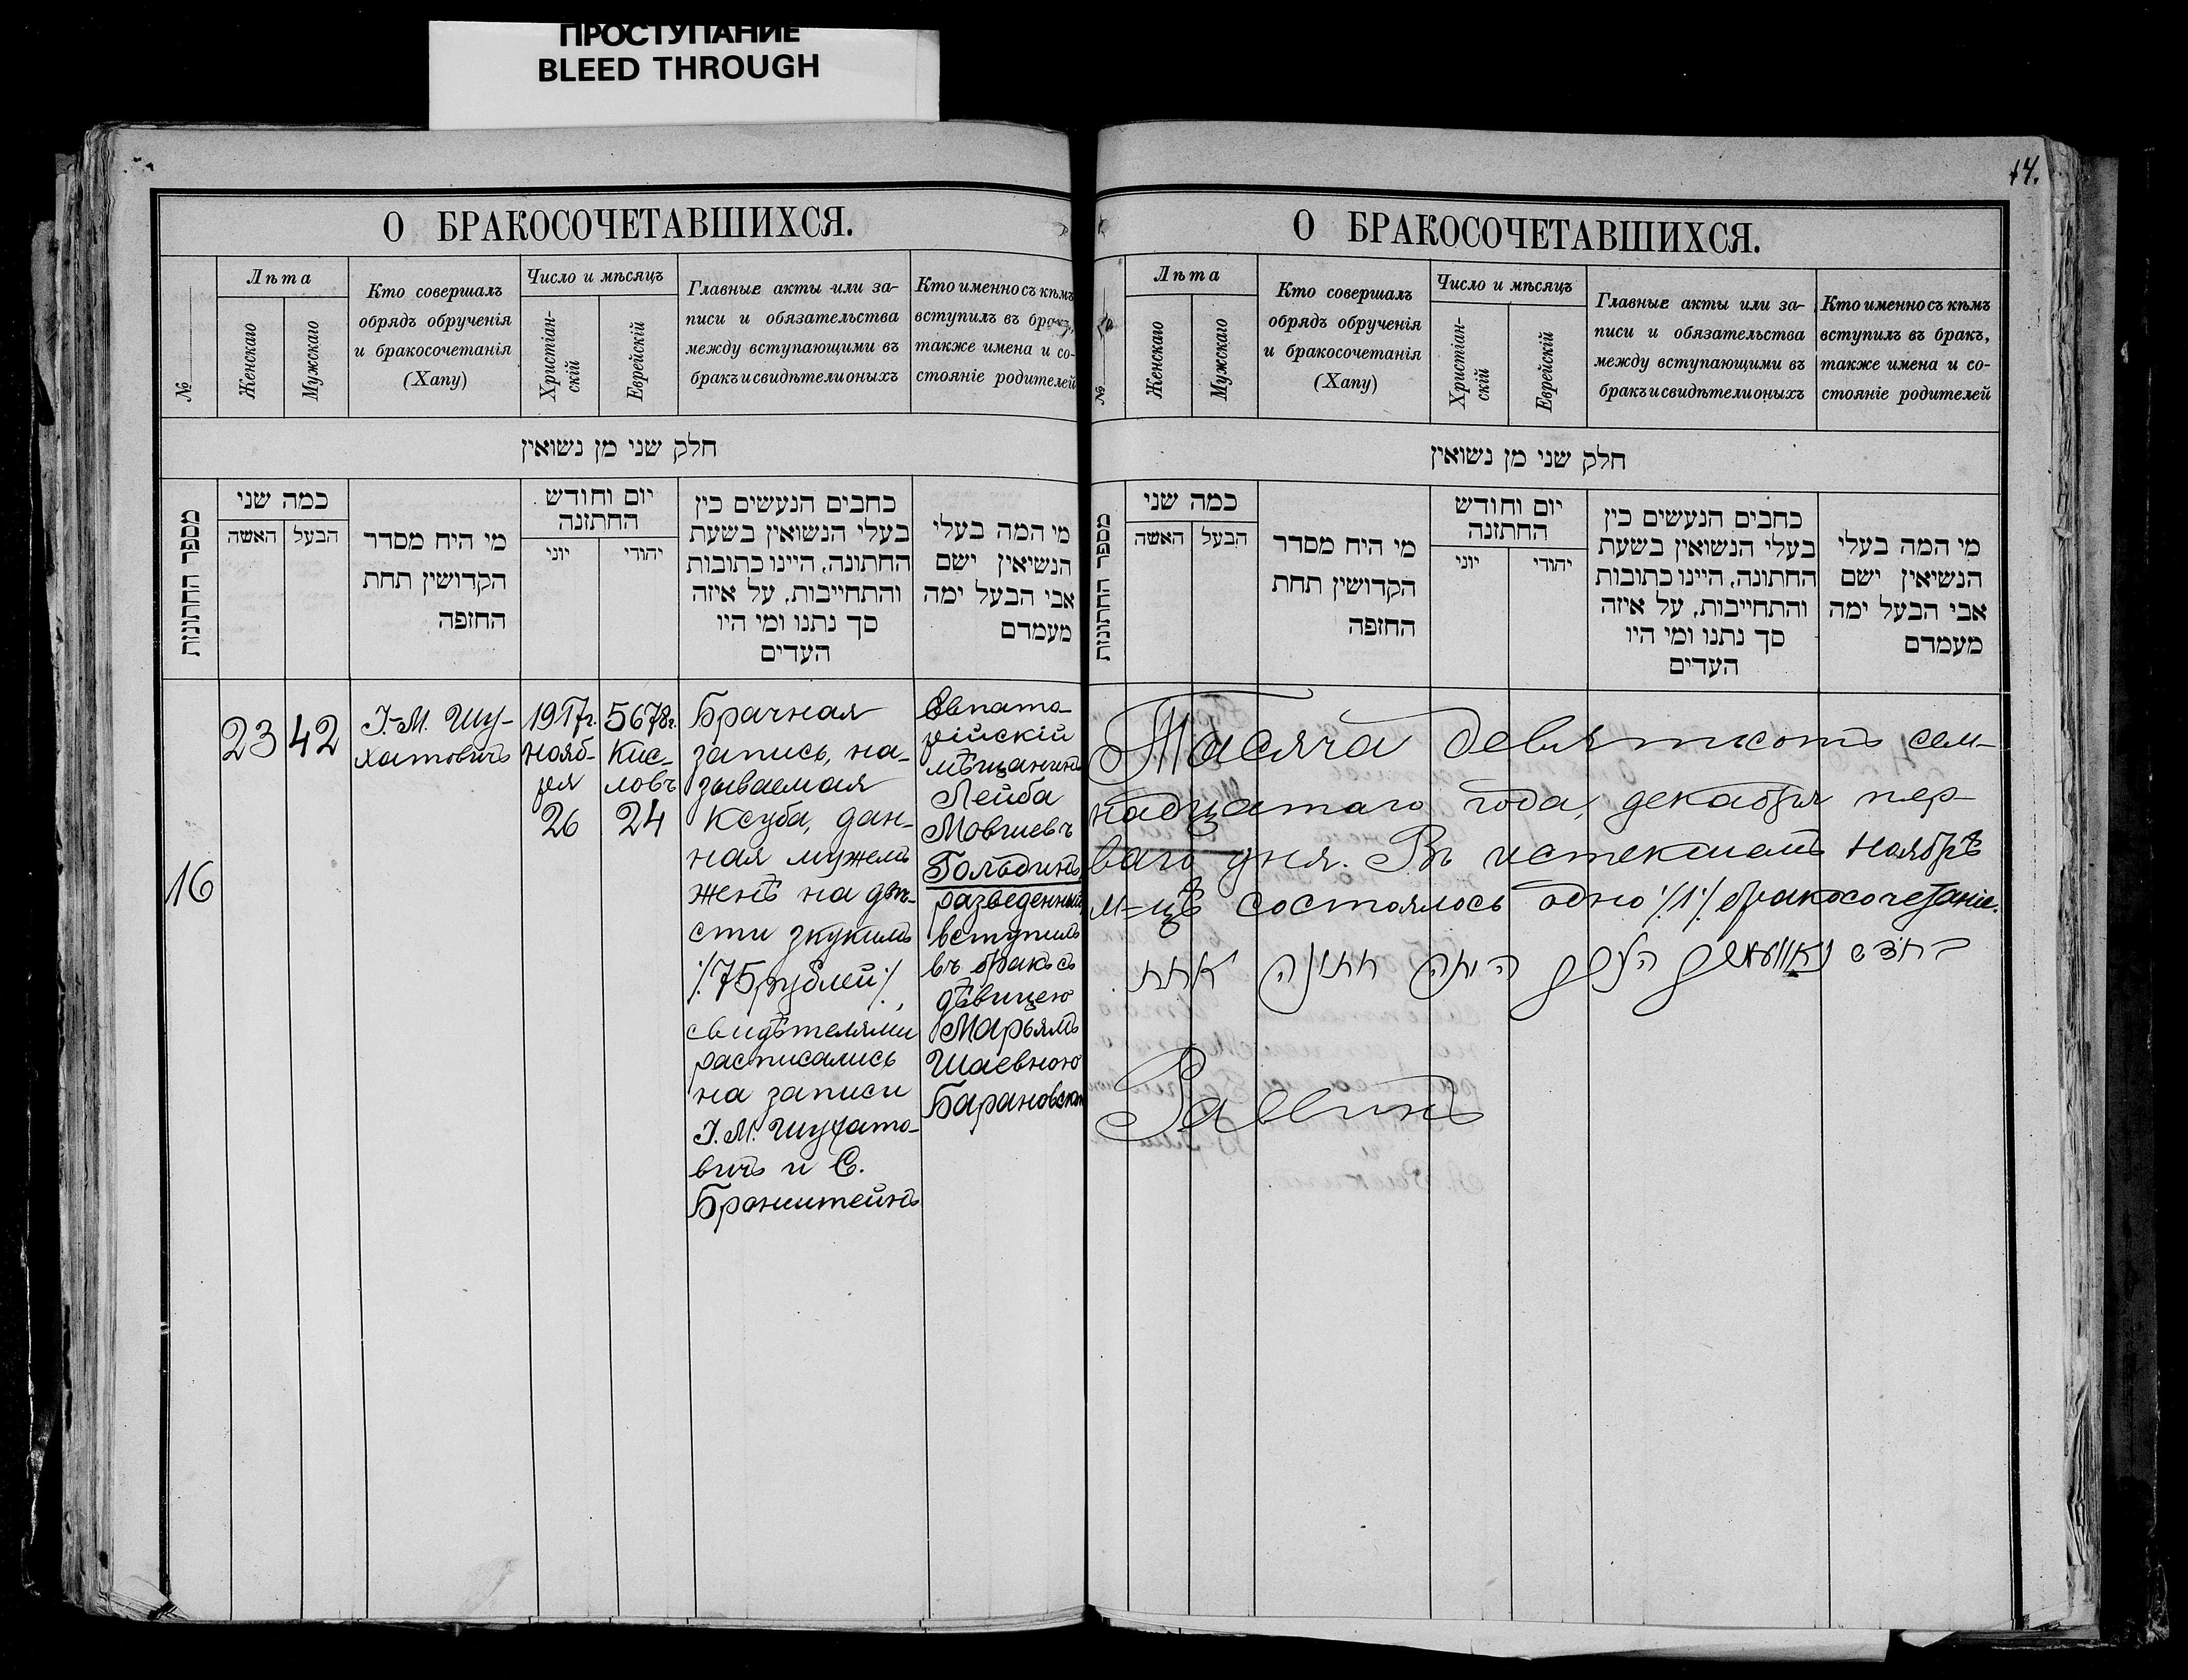 ПРОСТУПАНИЕ
BLEED THROUGH
О БРАКОСОЧЕТАВШИХСЯ.
№
Лѣта
Женскаго
Мужскаго
Кто совершалъ
обрядъ обрученія
и бракосочетанія
(Хапу)
Число и мѣсяцъ
Христіан-
скій
Еврейскій
Главные акты или за-
писи и обязательства
между вступающими въ
бракъ и свидѣтели оныхъ
Кто именно съ кѣмъ
вступилъ въ бракъ,
также имена и со-
стояніе родителей
חלק שני מן נשואין
מספר החתונות
כמה שני
האשה
הבעל
מי היח מסדר
הקדושין תחת
החזפה
יום וחודש
החתזנה
יוני
יהודי
כחבים הנעשים כין
בעלי הנשואין בשעת
החתונה, היינו כתובות
והתחייבות, על איזה
סך נתנו ומי היו
העדים
מי המה בעלי
הנשיאין ישם
אבי הבעל ימה
מעמדם
16
23
42
І-М. Шу-
хатовичъ
1917г.
нояб-
ря
26
5678г.
Кис-
ловъ
24
Брачная
запись, на-
зываемая
Ксуба, дан-
ная мужемъ
женѣ на двѣ-
сти зкукимъ
/:75 рублей:/
свидѣтелями
расписались
на записи
І. М. Шухато-
вичъ и С.
Бронштейнъ
Евпато-
рійскій
мѣщанинъ
Лейба
Мовшевъ
Гольдинъ,
разведенный
вступилъ
въ бракъ съ
дѣвицею
Марьямъ
Шаевною
Барановской
14.
О БРАКОСОЧЕТАВШИХСЯ.
№
Лѣта
Женскаго
Мужскаго
Кто совершалъ
обрядъ обрученія
и бракосочетанія
(Хапу)
Число и мѣсяцъ
Христіан-
скій
Еврейскій
Главные акты или за-
писи и обязательства
между вступающими въ
бракъ и свидѣтели оныхъ
Кто именно съ кѣмъ
вступилъ въ бракъ,
также имена и со-
стояніе родителей
חלק שני מן נשואין
מספר החתונות
כמה שני
האשה
הבעל
מי היח מסדר
הקדושין תחת
החזפה
יום וחודש
החתזנה
יוני
יהודי
כחבים הנעשים כין
בעלי הנשואין בשעת
החתונה, היינו כתובות
והתחייבות, על איזה
סך נתנו ומי היו
העדים
מי המה בעלי
הנשיאין ישם
אבי הבעל ימה
מעמדם
Тысяча девятисотъ сем-
надцатаго года, декабря пер-
ваго дня. Въ истекшемъ ноябрѣ
м-цѣ состоялось одно /:1:/ бракосочетаніе.
היתה חתונה אחת
Раввинъ